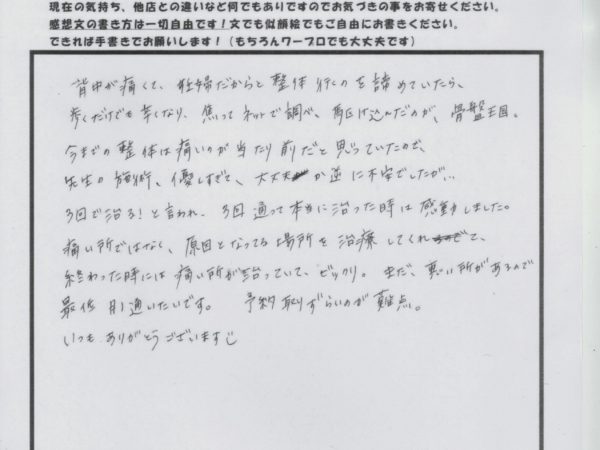 現在の気持ち、他店との違いなど何でもありですのでお気づきの事をお寄せください。
感想文の書き方は一切自由です！文でも似顔絵でもご自由にお書きください。
できれば手書きでお願いします！（もちろんワープロでも大丈夫です）
背中が痛くて、妊婦だからと整体行くのを諦めていたら、
歩くだけでも辛くなり、焦ってネットで調べ、駆け込んだのが、骨盤王国。
今までの整体は痛いのが当たり前だと思っていたので、
先生の施術、優しすぎて、大丈夫か逆に不安でしたが、、
3回で治る！と言われ、3回通って本当に治った時は感動しました。
痛い所ではなく、原因となってる場所を治療してくれて、
終わった時には痛い所が治っていて、ビックリ。まだ、悪い所があるので
最低月1通いたいです。 予約取りずらいのが難点。
いつもありがとうございます